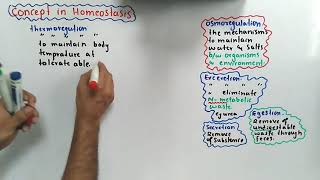 Concept in Homeostasis
thermoregulation
" " " "
to maintain body
temprature at
tolerate able
osmoregulation
the mechanisms
to maintain
water & salts
b/w organisms
& environment
Excretion
" " " "
" eliminate
N₂-metabolic
waste
eg urea
Secretion
Remove of
Substance
Egestion
Remove of
undigestable
waste through
feces.